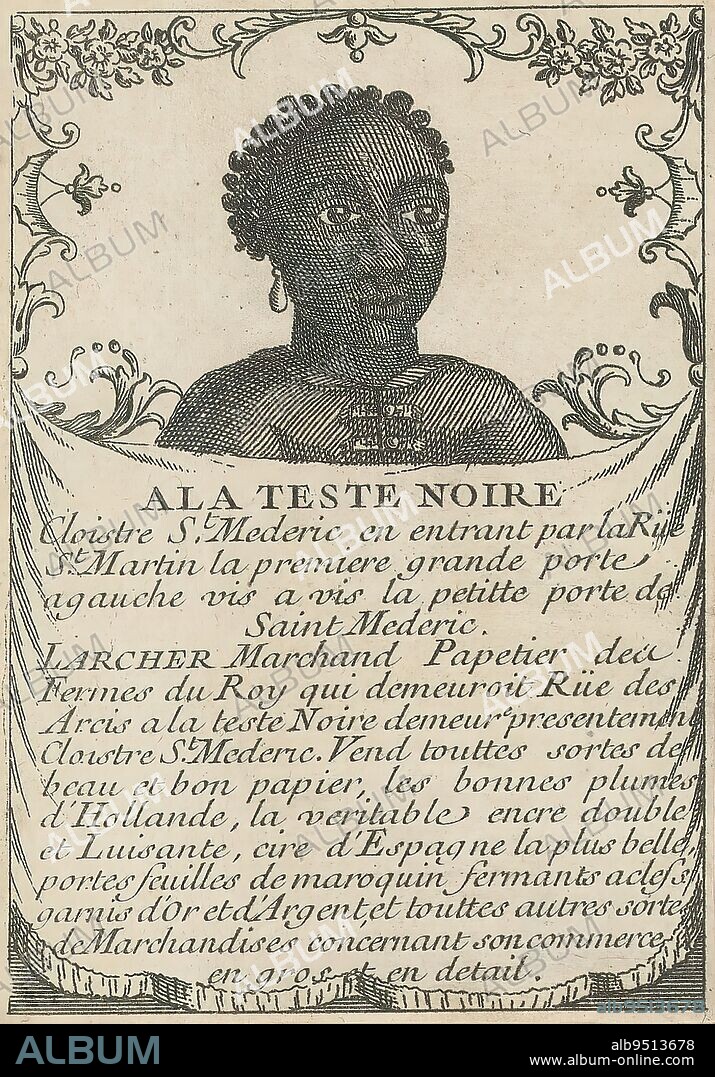 A LA TESTE NOIRE
Cloistre S.t Mederic, en entrant par la Rüe
S.t Martin la premiere grande porte
agauche vis a vis la petitte porte de
Saint Mederic.
LARCHER Marchand Papetier des
Fermes du Roy qui demeuroit Rüe des
Arcis a la teste Noire demeur.e presentement
Cloistre S.t Mederic. Vend touttes sortes de
beau et bon papier, les bonnes plumes
d'Hollande, la veritable encre double
et Luisante, cire d'Espagne la plus belle,
portes feuilles de maroquin fermants a clefs
garnis d'Or et d'Argent, et touttes autres sorte
de Marchandises concernant son commerce
en gros et en detail.
ALBUM
alb9513678
www.album-online.com